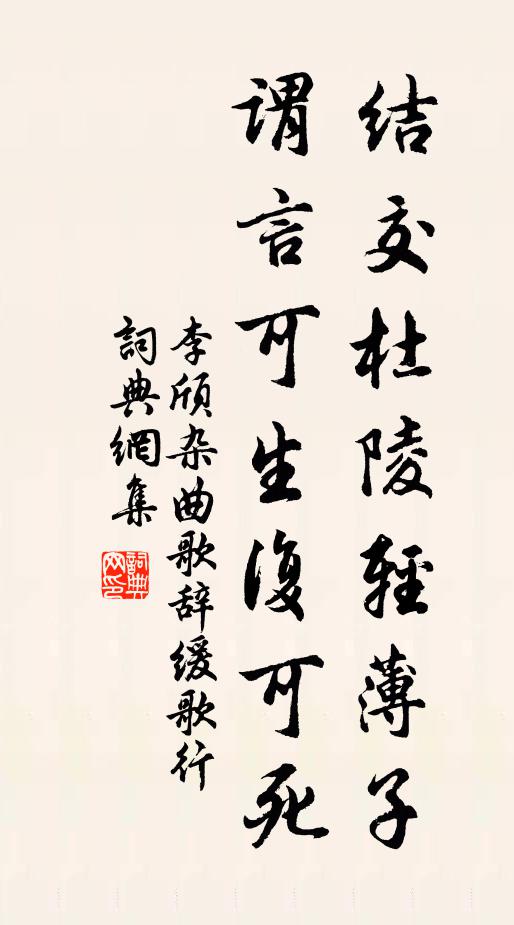 结交杜陵輕薄子
谓言可生復可死
李颀杂曲歌辞缓歌行
詞典網集
詞典
网印